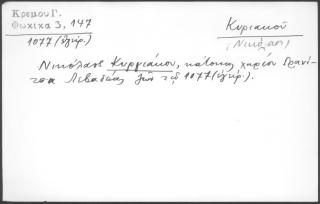 Κρέμου Γ.
Φωκικά 3, 147
1077 (ἔγγρ.)
Κυριακοῦ
(Νικόλαος)
Νικόλαος Κυργιάκου, κάτοικος χωρίου Γρανί-
τσα Λεβαδείας ζῶν τῷ 1077 (ἔγγρ.).